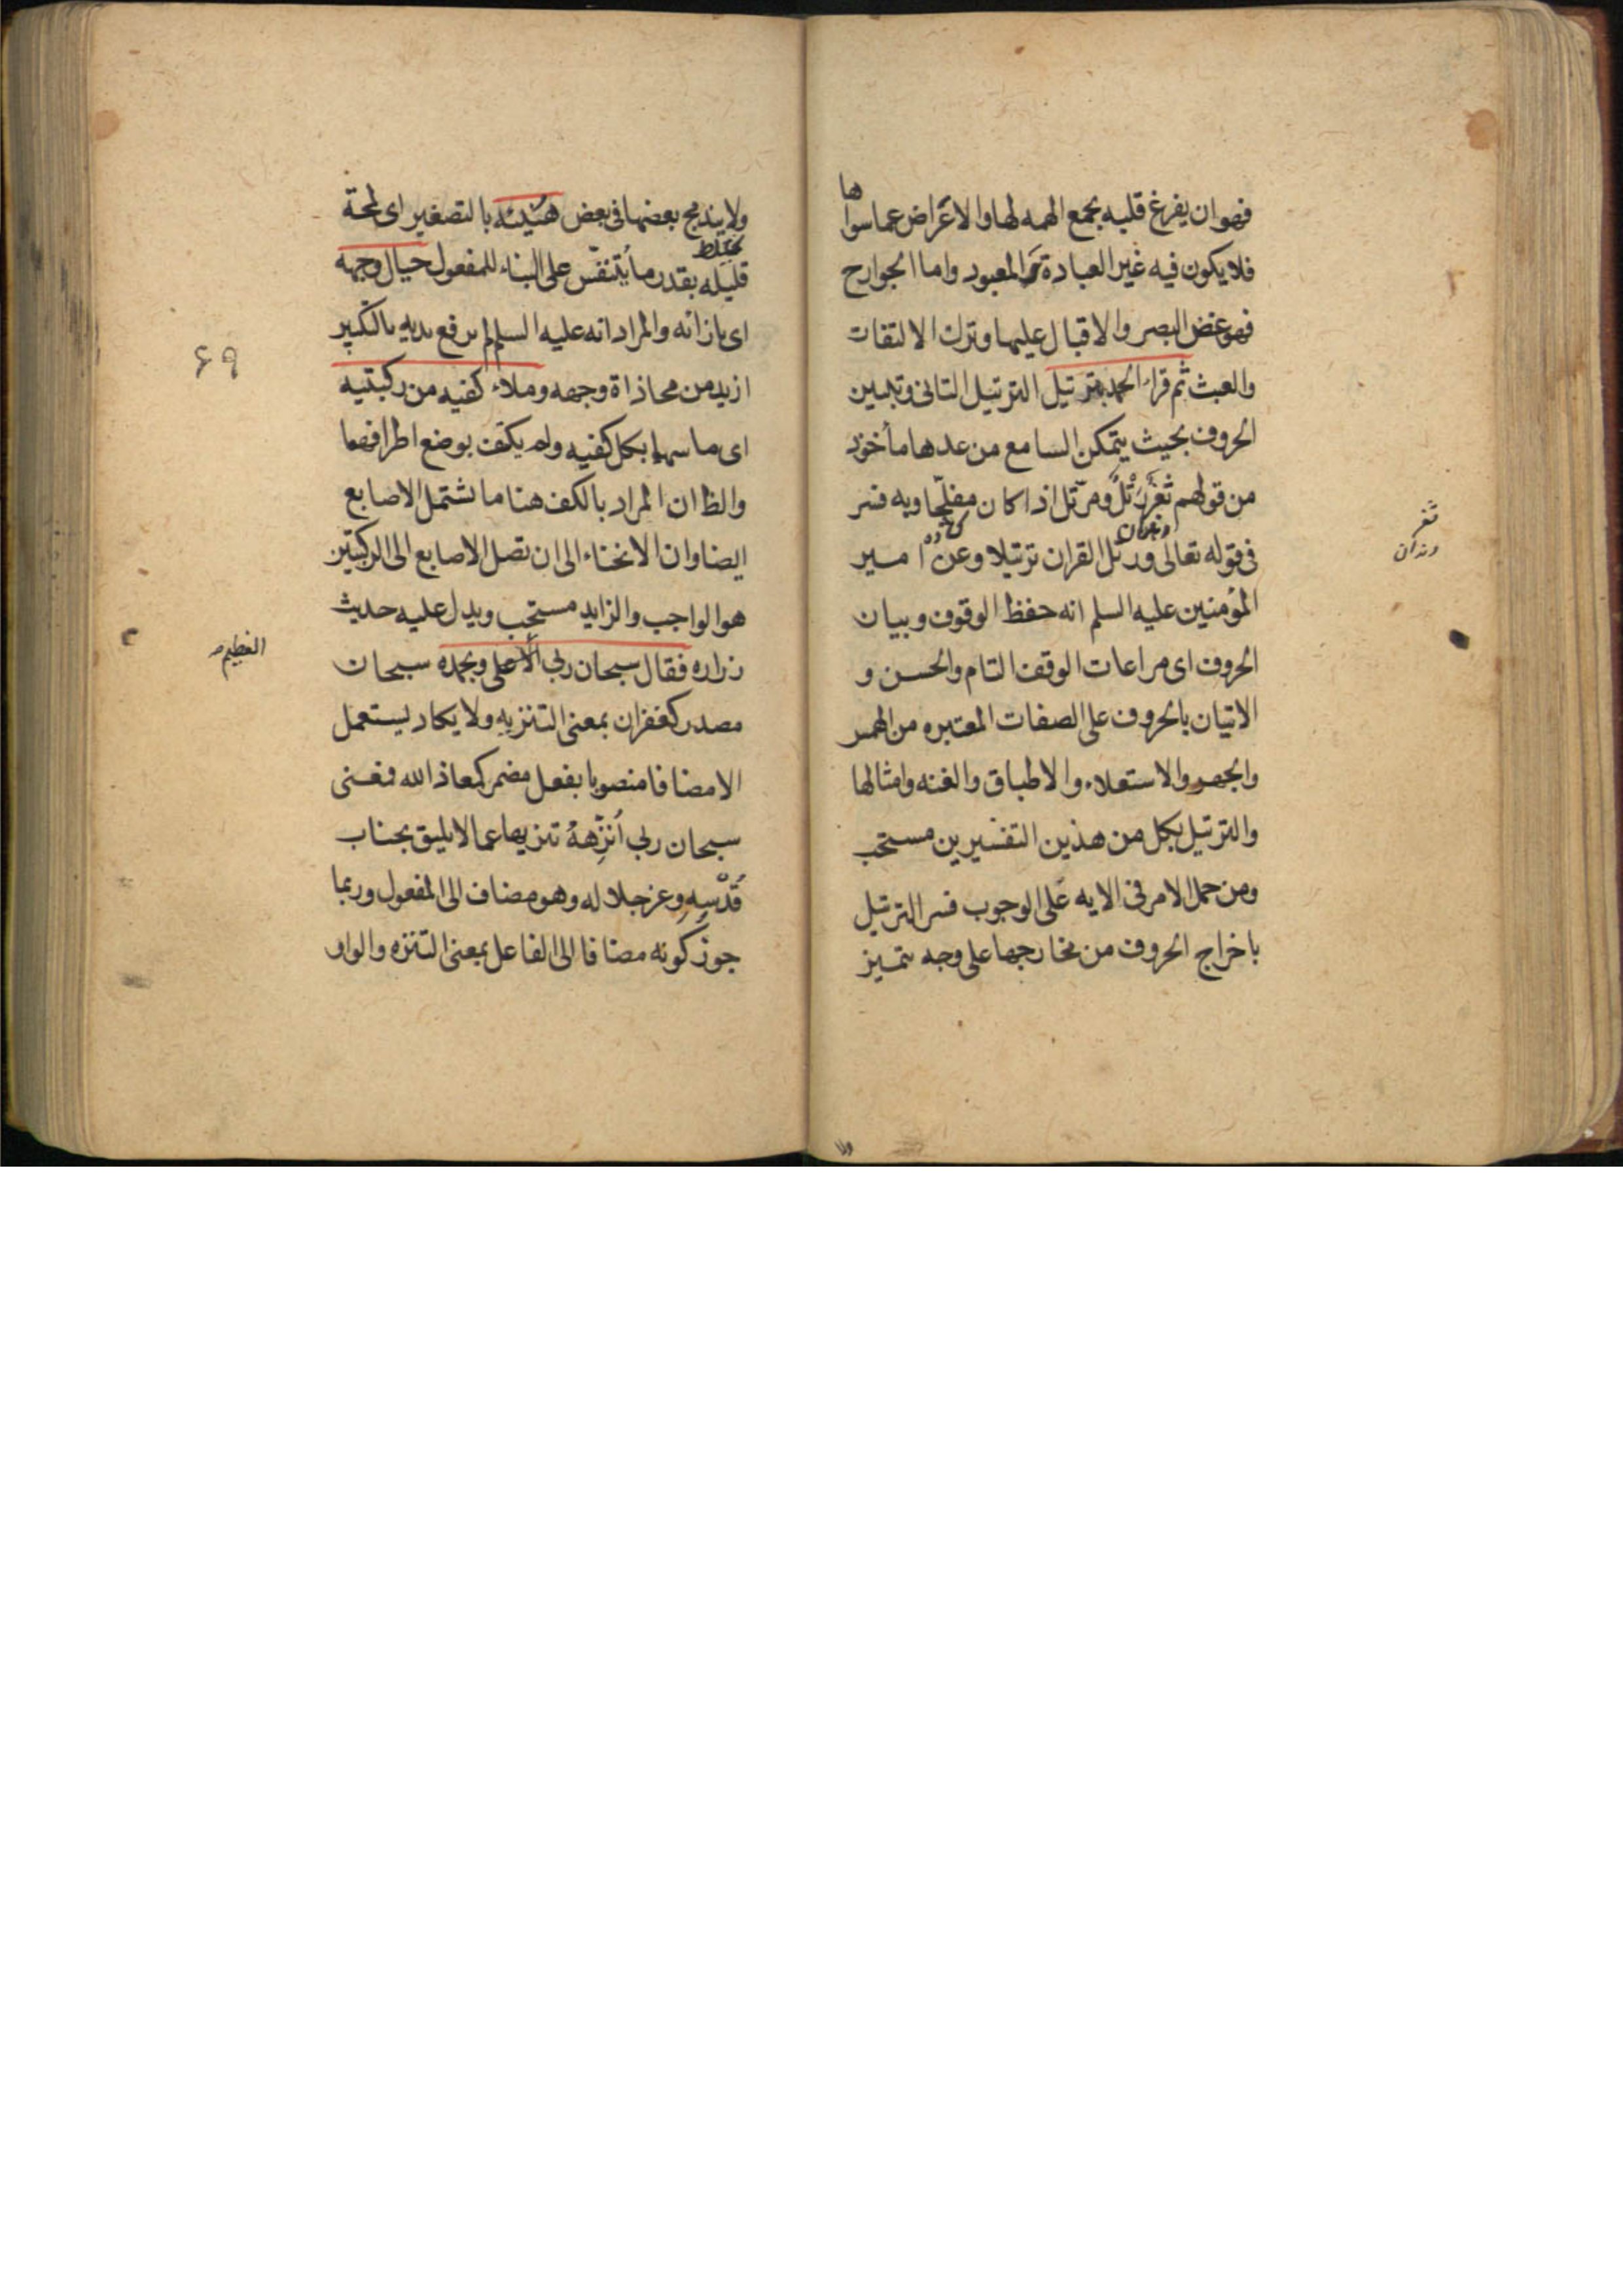 فهو ان يفرغ قلبه بجمع الهمه لها والاعراض عما سواها
فلا يكون فيه غير العبادة والمعبود واما الجوارح
فهو غض البصر والاقبال عليها وترك الالتفات
والعبث ثم قراء الحمد بترتيل الترتيل التانى وتبيين
الحروف بحيث يتمكن السامع من عدها مأخوذ
من قولهم ثغر رَتْلٌ ومرتل اذا كان مفلجا وبه فسر
دندان
فى قوله تعالى ورتل القران ترتيلا وعن امير
المؤمنين عليه السلم انه حفظ الوقوف وبيان
الحروف اى مراعات الوقف التام والحسن و
الاتيان بالحروف على الصفات المعتبره من الهمس
والجهر والاستعلاء والاطباق والغنه وامثالها
والترتيل بكل من هذين التفسيرين مستحب
ومن حمل الامر فى الايه على الوجوب فسر الترتيل
باخراج الحروف من مخارجها على وجه تتميز
ولا
ثغر
دندان
ولا يندمج بعضها فى بعض هنيئه بالتصغير اى لمحة
يختلط
قليله بقدر ما يُتنفّس على البناء للمفعول حيال وجهه
اى بازائه والمراد انه عليه السلم لم يرفع يديه بالتكبير
ازيد من محاذاة وجهه وملاء كفيه من ركبتيه
اى ماسهما بكل كفيه ولم يكتف بوضع اطرافهما
والظ ان المراد بالكف هنا ما تشتمل الاصابع
ايضا وان الانحناء الى ان تصل الاصابع الى الركبتين
هو الواجب والزايد مستحب ويدل عليه حديث
زراره فقال سبحان ربى الاعلى وبحمده سبحان
مصدر كغفران بمعنى التنزيه ولا يكاد يستعمل
الا مضافا منصوبا بفعل مضمر كمعاذ الله فمعنى
سبحان ربى اُنزّهُهُ تنزيها عما لا يليق بجناب
قُدْسِهِ وعز جلاله وهو مضاف الى المفعول وربما
جوز كونه مضافا الى الفاعل بمعنى التنزه والواو
۶۹
العظيم